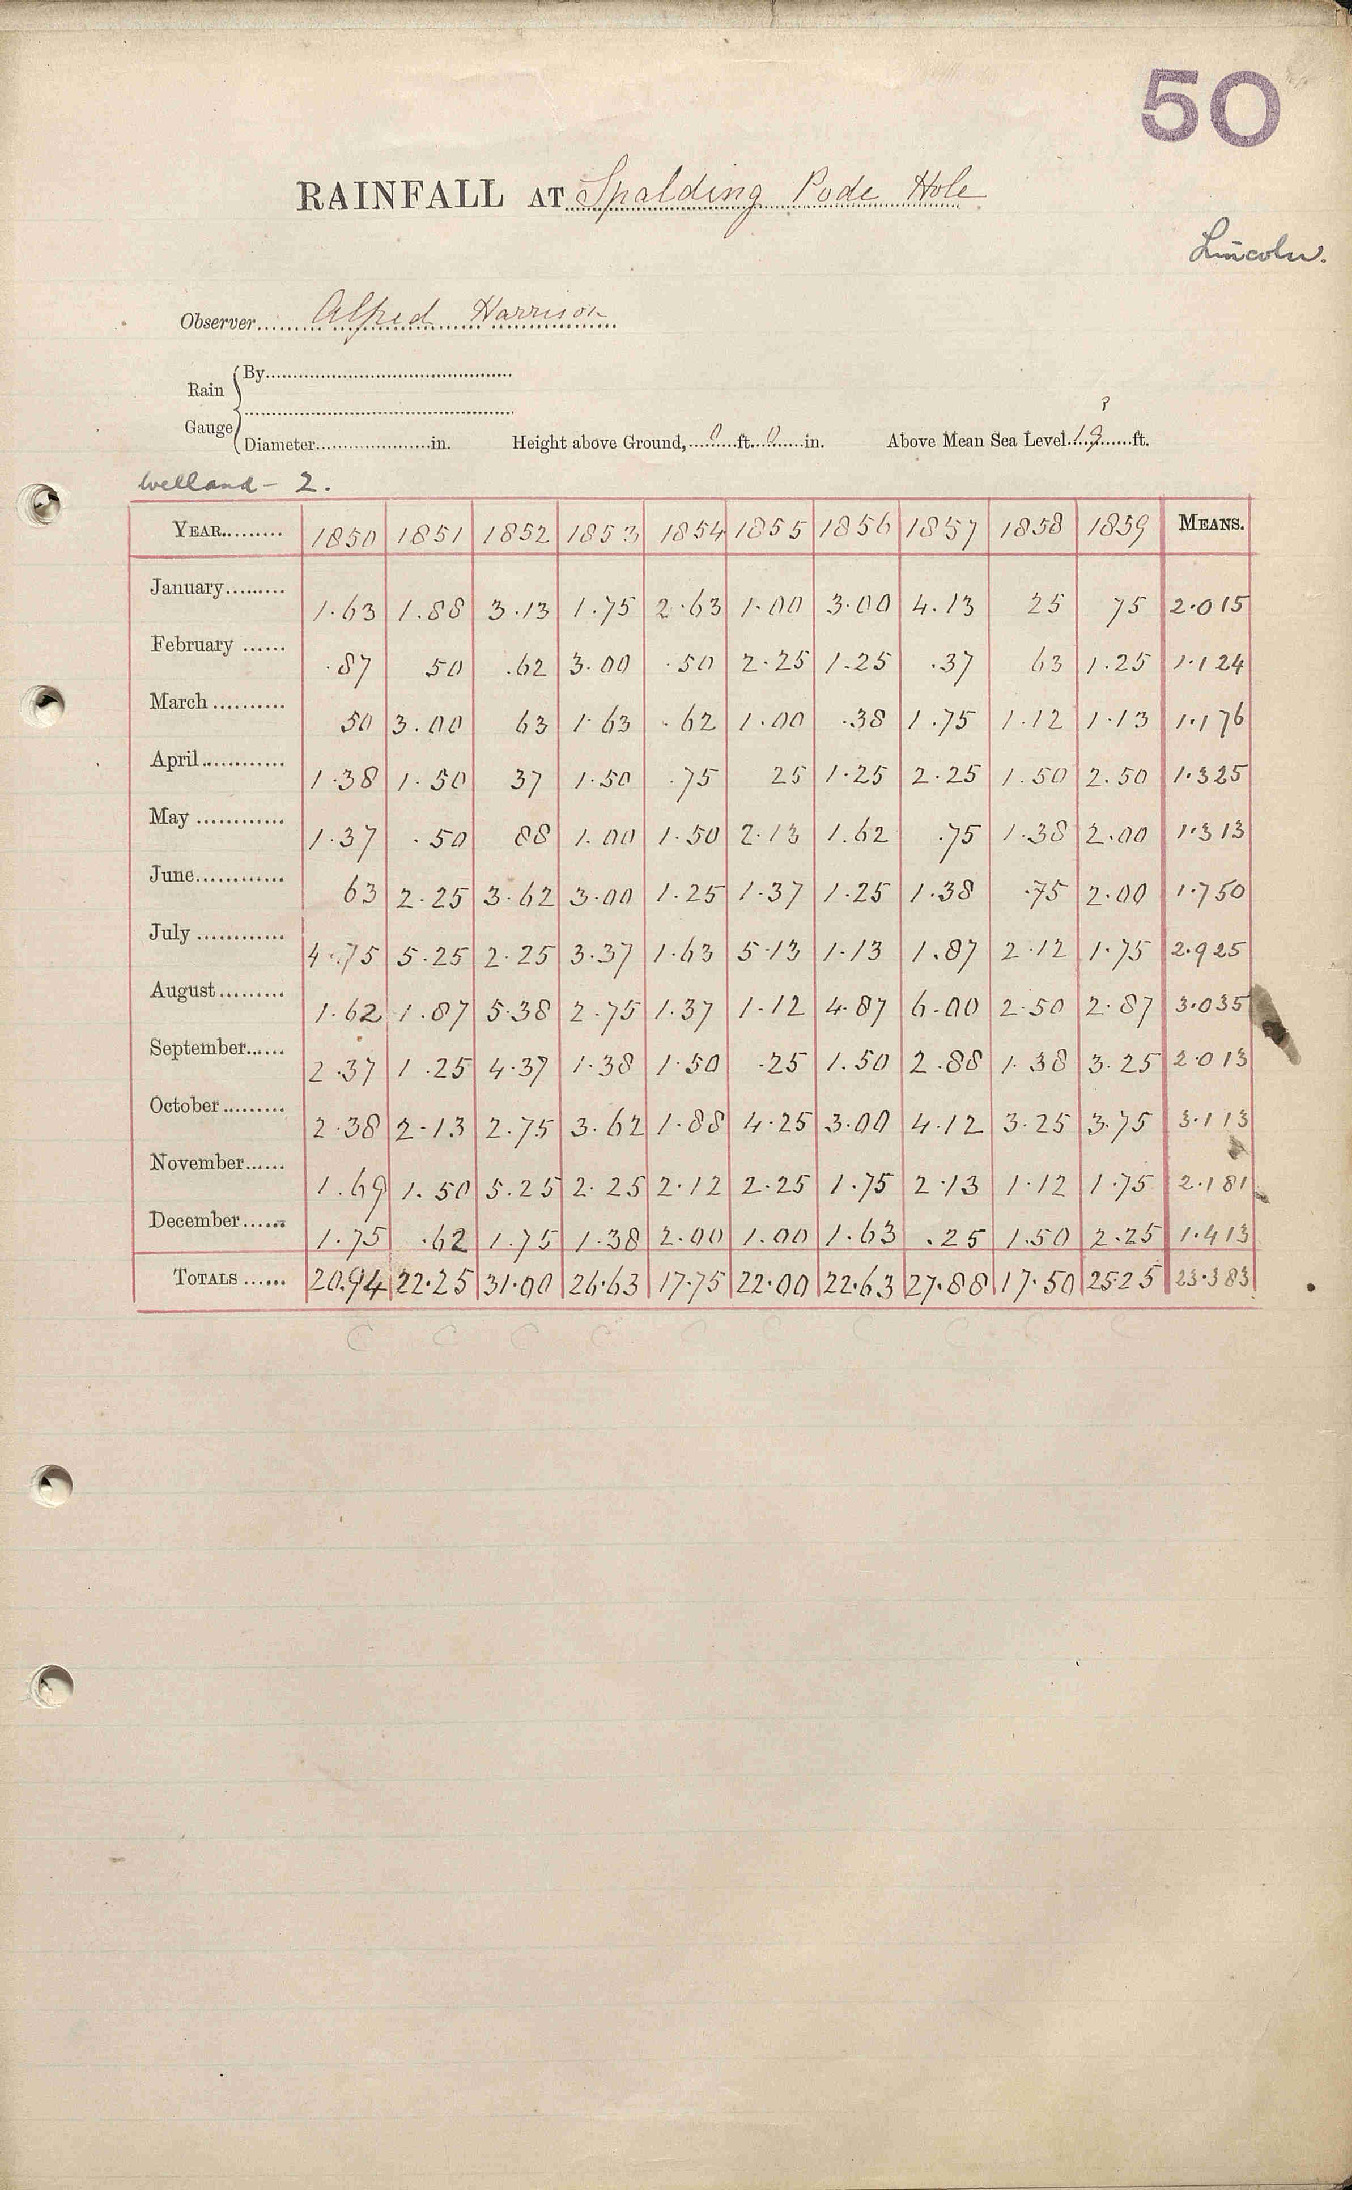 50
RAINFALL AT Spalding Pode Hole
Lincoln.
Observer Alfred Harrison
Rain Gauge
By
?
Diameter in. Height above Ground, 0 ft. 0 in. Above Mean Sea Level 19 ft.
Welland - 2.
YEAR 1850 1851 1852 1853 1854 1855 1856 1857 1858 1859 MEANS.
January 1.63 1.88 3.13 1.75 2.63 1.00 3.00 4.13 25 75 2.015
February .87 50 .62 3.00 .50 2.25 1.25 .37 63 1.25 1.124
March 50 3.00 63 1.63 .62 1.00 .38 1.75 1.12 1.13 1.176
April 1.38 1.50 37 1.50 .75 25 1.25 2.25 1.50 2.50 1.325
May 1.37 .50 88 1.00 1.50 2.13 1.62 .75 1.38 2.00 1.313
June 63 2.25 3.62 3.00 1.25 1.37 1.25 1.38 .75 2.00 1.750
July 4.75 5.25 2.25 3.37 1.63 5.13 1.13 1.87 2.12 1.75 2.925
August 1.62 1.87 5.38 2.75 1.37 1.12 4.87 6.00 2.50 2.87 3.035
September 2.37 1.25 4.37 1.38 1.50 .25 1.50 2.88 1.38 3.25 2.013
October 2.38 2.13 2.75 3.62 1.88 4.25 3.00 4.12 3.25 3.75 3.113
November 1.69 1.50 5.25 2.25 2.12 2.25 1.75 2.13 1.12 1.75 2.181
December 1.75 .62 1.75 1.38 2.00 1.00 1.63 .25 1.50 2.25 1.413
TOTALS 20.94 22.25 31.00 26.63 17.75 22.00 22.63 27.88 17.50 25.25 23.383
C C C C C C C C C C